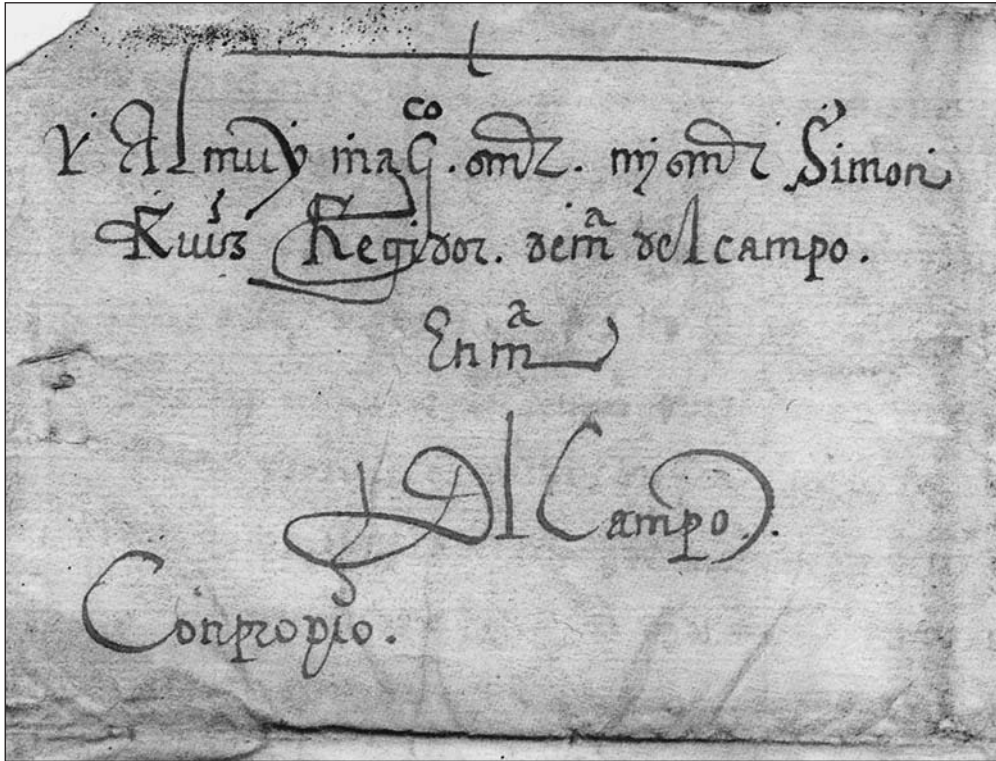 Y Al muy magco. omr. mj omr Simon
Ruiz Regidor. de ma del campo.
En ma
Del Campo.
Con propio.